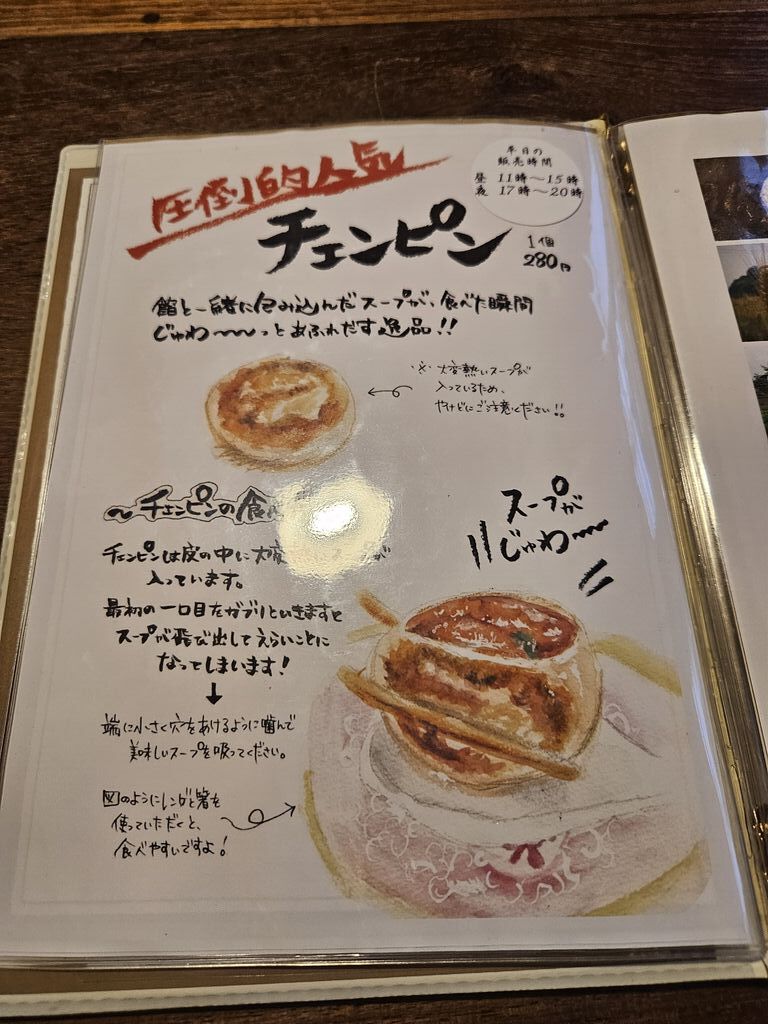 圧倒的人気
チェンピン
平日の
販売時間
昼 11時〜15時
夜 17時〜20時
1個
280円
餡と一緒に包み込んだスープが、食べた瞬間
じゅわ〜〜〜っとあふれだす逸品!!
※ 大変熱いスープが
入っているため、
やけどにご注意ください!!
〜チェンピンの食
チェンピンは皮の中に大変
が
入っています。
最初の一口目をガブリといきますと
スープが飛び出してえらいことに
なってしまいます!
↓
端に小さく穴をあけるように噛んで
美味しいスープを吸ってください。
図のようにレンゲと箸を
使っていただくと、
食べやすいですよ!
スープが
じゅわ〜〜〜